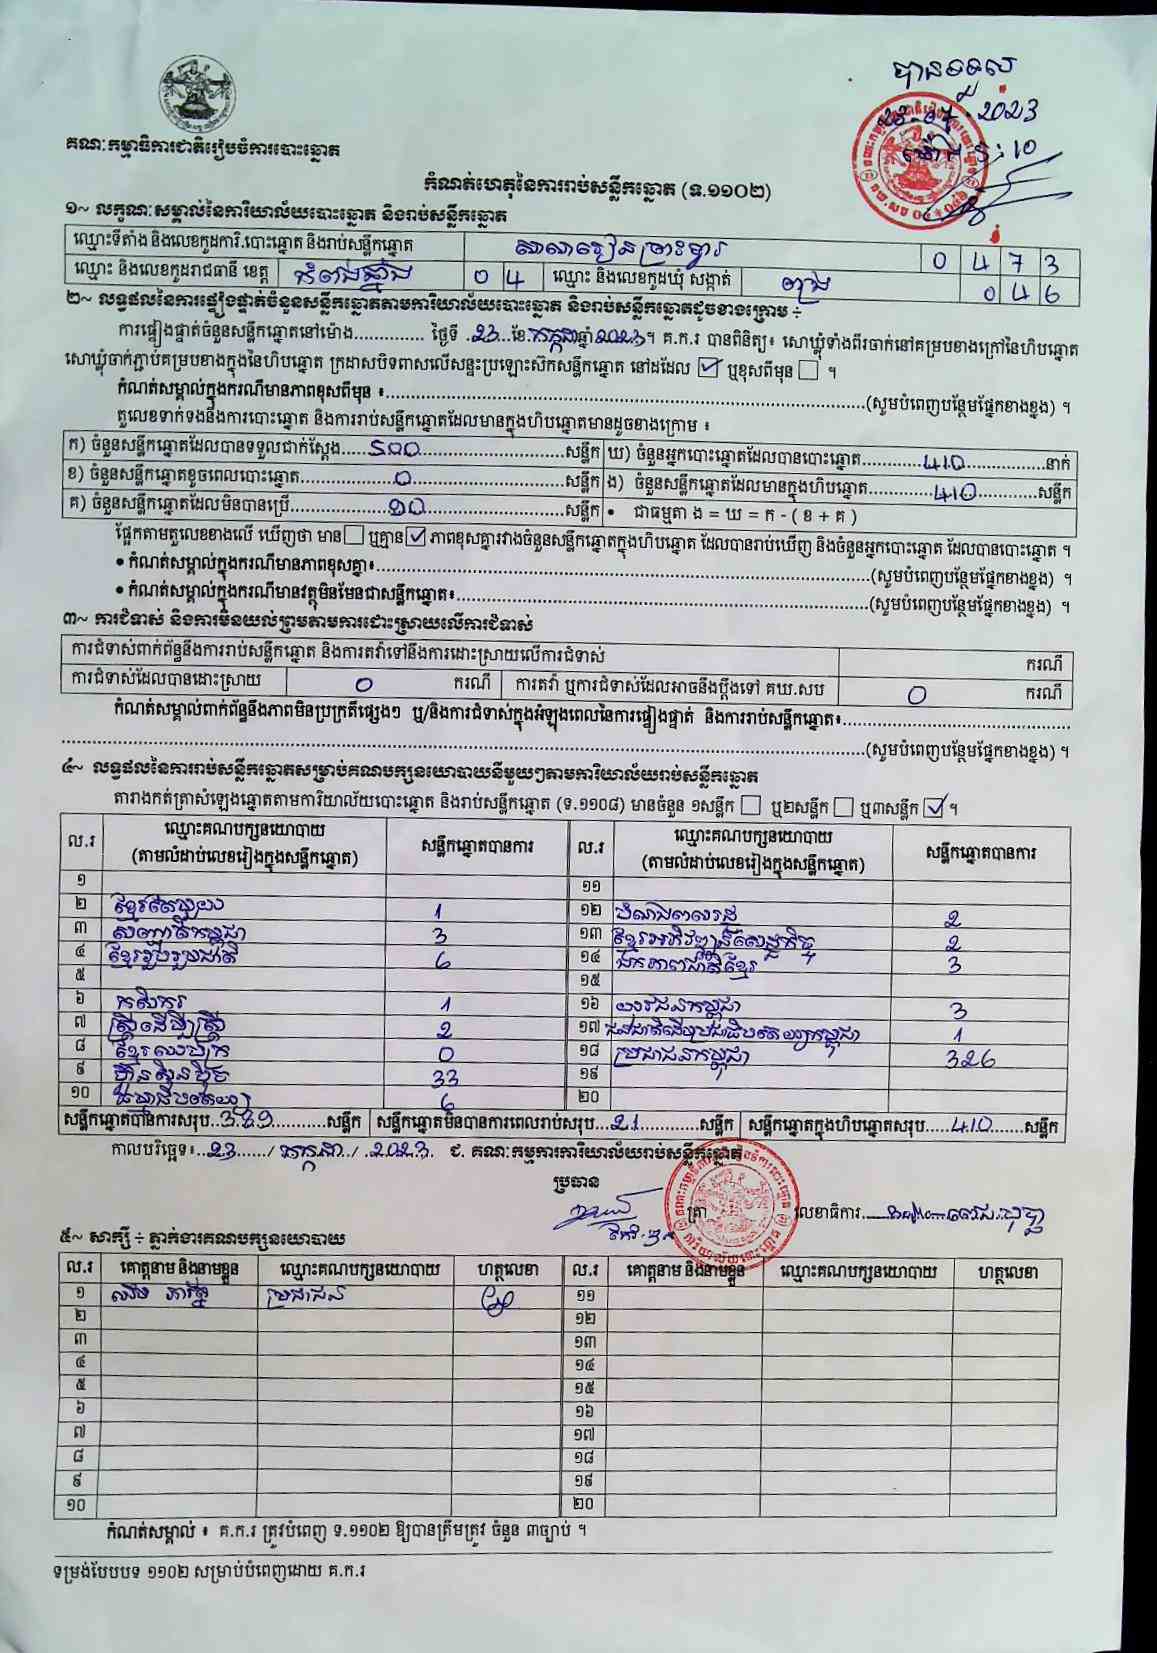 បានទទួល
23-07-2023
ម៉ោង 5:10
គណៈកម្មាធិការជាតិរៀបចំការបោះឆ្នោត
កំណត់ហេតុនៃការរាប់សន្លឹកឆ្នោត (ទ.១១០២)
១~ លក្ខណៈសម្គាល់នៃការិយាល័យបោះឆ្នោត និងរាប់សន្លឹកឆ្នោត
ឈ្មោះទីតាំង និងលេខកូដការិ.បោះឆ្នោត និងរាប់សន្លឹកឆ្នោត សាលារៀន 0 4 7 3
ឈ្មោះ និងលេខកូដរាជធានី ខេត្ត កំពង់ឆ្នាំង 0 4 ឈ្មោះ និងលេខកូដឃុំ សង្កាត់ 0 4 6
២~ លទ្ធផលនៃការផ្ទៀងផ្ទាត់ចំនួនសន្លឹកឆ្នោតតាមការិយាល័យបោះឆ្នោត និងរាប់សន្លឹកឆ្នោតដូចខាងក្រោម ÷
ការផ្ទៀងផ្ទាត់ចំនួនសន្លឹកឆ្នោតនៅម៉ោង.............. ថ្ងៃទី .23...ខែ.កក្កដា.ឆ្នាំ 2023។ គ.ក.រ បានពិនិត្យ៖ សោឃ្លុំទាំងពីរចាក់នៅគម្របខាងក្រៅនៃហិបឆ្នោត
សោឃ្លុំចាក់ភ្ជាប់គម្របខាងក្នុងនៃហិបឆ្នោត ក្រដាសបិទពាសលើសន្ទះប្រឡោះស៊កសន្លឹកឆ្នោត នៅដដែល ☑ ឬខុសពីមុន ☐ ។
កំណត់សម្គាល់ក្នុងករណីមានភាពខុសពីមុន ៖..........(សូមបំពេញបន្ថែមផ្នែកខាងខ្នង) ។
តួលេខទាក់ទងនឹងការបោះឆ្នោត និងការរាប់សន្លឹកឆ្នោតដែលមានក្នុងហិបឆ្នោតមានដូចខាងក្រោម ៖
ក) ចំនួនសន្លឹកឆ្នោតដែលបានទទួលជាក់ស្តែង.....500..........សន្លឹក ឃ) ចំនួនអ្នកបោះឆ្នោតដែលបានបោះឆ្នោត..........410..........នាក់
ខ) ចំនួនសន្លឹកឆ្នោតខូចពេលបោះឆ្នោត..........0..........សន្លឹក ង) ចំនួនសន្លឹកឆ្នោតដែលមានក្នុងហិបឆ្នោត..........410..........សន្លឹក
គ) ចំនួនសន្លឹកឆ្នោតដែលមិនបានប្រើ..........90..........សន្លឹក • ជាធម្មតា ង = ឃ = ក - ( ខ + គ )
ផ្អែកតាមតួលេខខាងលើ ឃើញថា មាន ☐ ឬគ្មាន ☑ ភាពខុសគ្នារវាងចំនួនសន្លឹកឆ្នោតក្នុងហិបឆ្នោត ដែលបានរាប់ឃើញ និងចំនួនអ្នកបោះឆ្នោត ដែលបានបោះឆ្នោត ។
• កំណត់សម្គាល់ក្នុងករណីមានភាពខុសគ្នា៖..........(សូមបំពេញបន្ថែមផ្នែកខាងខ្នង) ។
• កំណត់សម្គាល់ក្នុងករណីមានវត្ថុមិនមែនជាសន្លឹកឆ្នោត៖..........(សូមបំពេញបន្ថែមផ្នែកខាងខ្នង) ។
៣~ ការជំទាស់ និងការមិនយល់ព្រមតាមការដោះស្រាយលើការជំទាស់
ការជំទាស់ពាក់ព័ន្ធនឹងការរាប់សន្លឹកឆ្នោត និងការតវ៉ាទៅនឹងការដោះស្រាយលើការជំទាស់ ករណី
ការជំទាស់ដែលបានដោះស្រាយ 0 ករណី ការតវ៉ា ឬការជំទាស់ដែលអាចនឹងប្តឹងទៅ គឃ.សប 0 ករណី
កំណត់សម្គាល់ពាក់ព័ន្ធនឹងភាពមិនប្រក្រតីផ្សេងៗ ឬ/និងការជំទាស់ក្នុងអំឡុងពេលនៃការផ្ទៀងផ្ទាត់ និងការរាប់សន្លឹកឆ្នោត៖..........
..........(សូមបំពេញបន្ថែមផ្នែកខាងខ្នង) ។
៤~ លទ្ធផលនៃការរាប់សន្លឹកឆ្នោតសម្រាប់គណបក្សនយោបាយនីមួយៗតាមការិយាល័យរាប់សន្លឹកឆ្នោត
តារាងកត់ត្រាសំឡេងឆ្នោតតាមការិយាល័យបោះឆ្នោត និងរាប់សន្លឹកឆ្នោត (ទ.១១០៨) មានចំនួន ១សន្លឹក ☐ ឬ២សន្លឹក ☐ ឬ៣សន្លឹក ☑ ។
ល.រ ឈ្មោះគណបក្សនយោបាយ (តាមលំដាប់លេខរៀងក្នុងសន្លឹកឆ្នោត) សន្លឹកឆ្នោតបានការ ល.រ ឈ្មោះគណបក្សនយោបាយ (តាមលំដាប់លេខរៀងក្នុងសន្លឹកឆ្នោត) សន្លឹកឆ្នោតបានការ
១ ១១
២ ខ្មែរតែមួយ 1 ១២ ដំណាងរាស្ត្រ 2
៣ សញ្ជាតិកម្ពុជា 3 ១៣ ខ្មែរអភិវឌ្ឍន៍សេដ្ឋកិច្ច 2
៤ ខ្មែររួបរួមជាតិ 6 ១៤ ឯកភាពជាតិខ្មែរ 3
៥ ១៥
៦ កសិករ 1 ១៦ យុវជនកម្ពុជា 3
៧ ស្ត្រីដើម្បីស្ត្រី 2 ១៧ ជនជាតិដើមប្រជាធិបតេយ្យកម្ពុជា 1
៨ ខ្មែរឈប់ក្រ 0 ១៨ ប្រជាជនកម្ពុជា 326
៩ ហ៊្វុនស៊ិនប៉ិច 33 ១៩
១០ ធម្មាធិបតេយ្យ 6 ២០
សន្លឹកឆ្នោតបានការសរុប..389..........សន្លឹក សន្លឹកឆ្នោតមិនបានការពេលរាប់សរុប...21..........សន្លឹក សន្លឹកឆ្នោតក្នុងហិបឆ្នោតសរុប.....410......សន្លឹក
កាលបរិច្ឆេទ៖..23....../ កក្កដា../ .2023. ជ. គណៈកម្មការការិយាល័យរាប់សន្លឹកឆ្នោត
ប្រធាន
ត្រា លេខាធិការ
៥~ សាក្សី ÷ ភ្នាក់ងារគណបក្សនយោបាយ
ល.រ គោត្តនាម និងនាមខ្លួន ឈ្មោះគណបក្សនយោបាយ ហត្ថលេខា ល.រ គោត្តនាម និងនាមខ្លួន ឈ្មោះគណបក្សនយោបាយ ហត្ថលេខា
១ ប្រជាជន ១១
២ ១២
៣ ១៣
៤ ១៤
៥ ១៥
៦ ១៦
៧ ១៧
៨ ១៨
៩ ១៩
១០ ២០
កំណត់សម្គាល់ ៖ គ.ក.រ ត្រូវបំពេញ ទ.១១០២ ឱ្យបានត្រឹមត្រូវ ចំនួន ៣ច្បាប់ ។
ទម្រង់បែបបទ ១១០២ សម្រាប់បំពេញដោយ គ.ក.រ